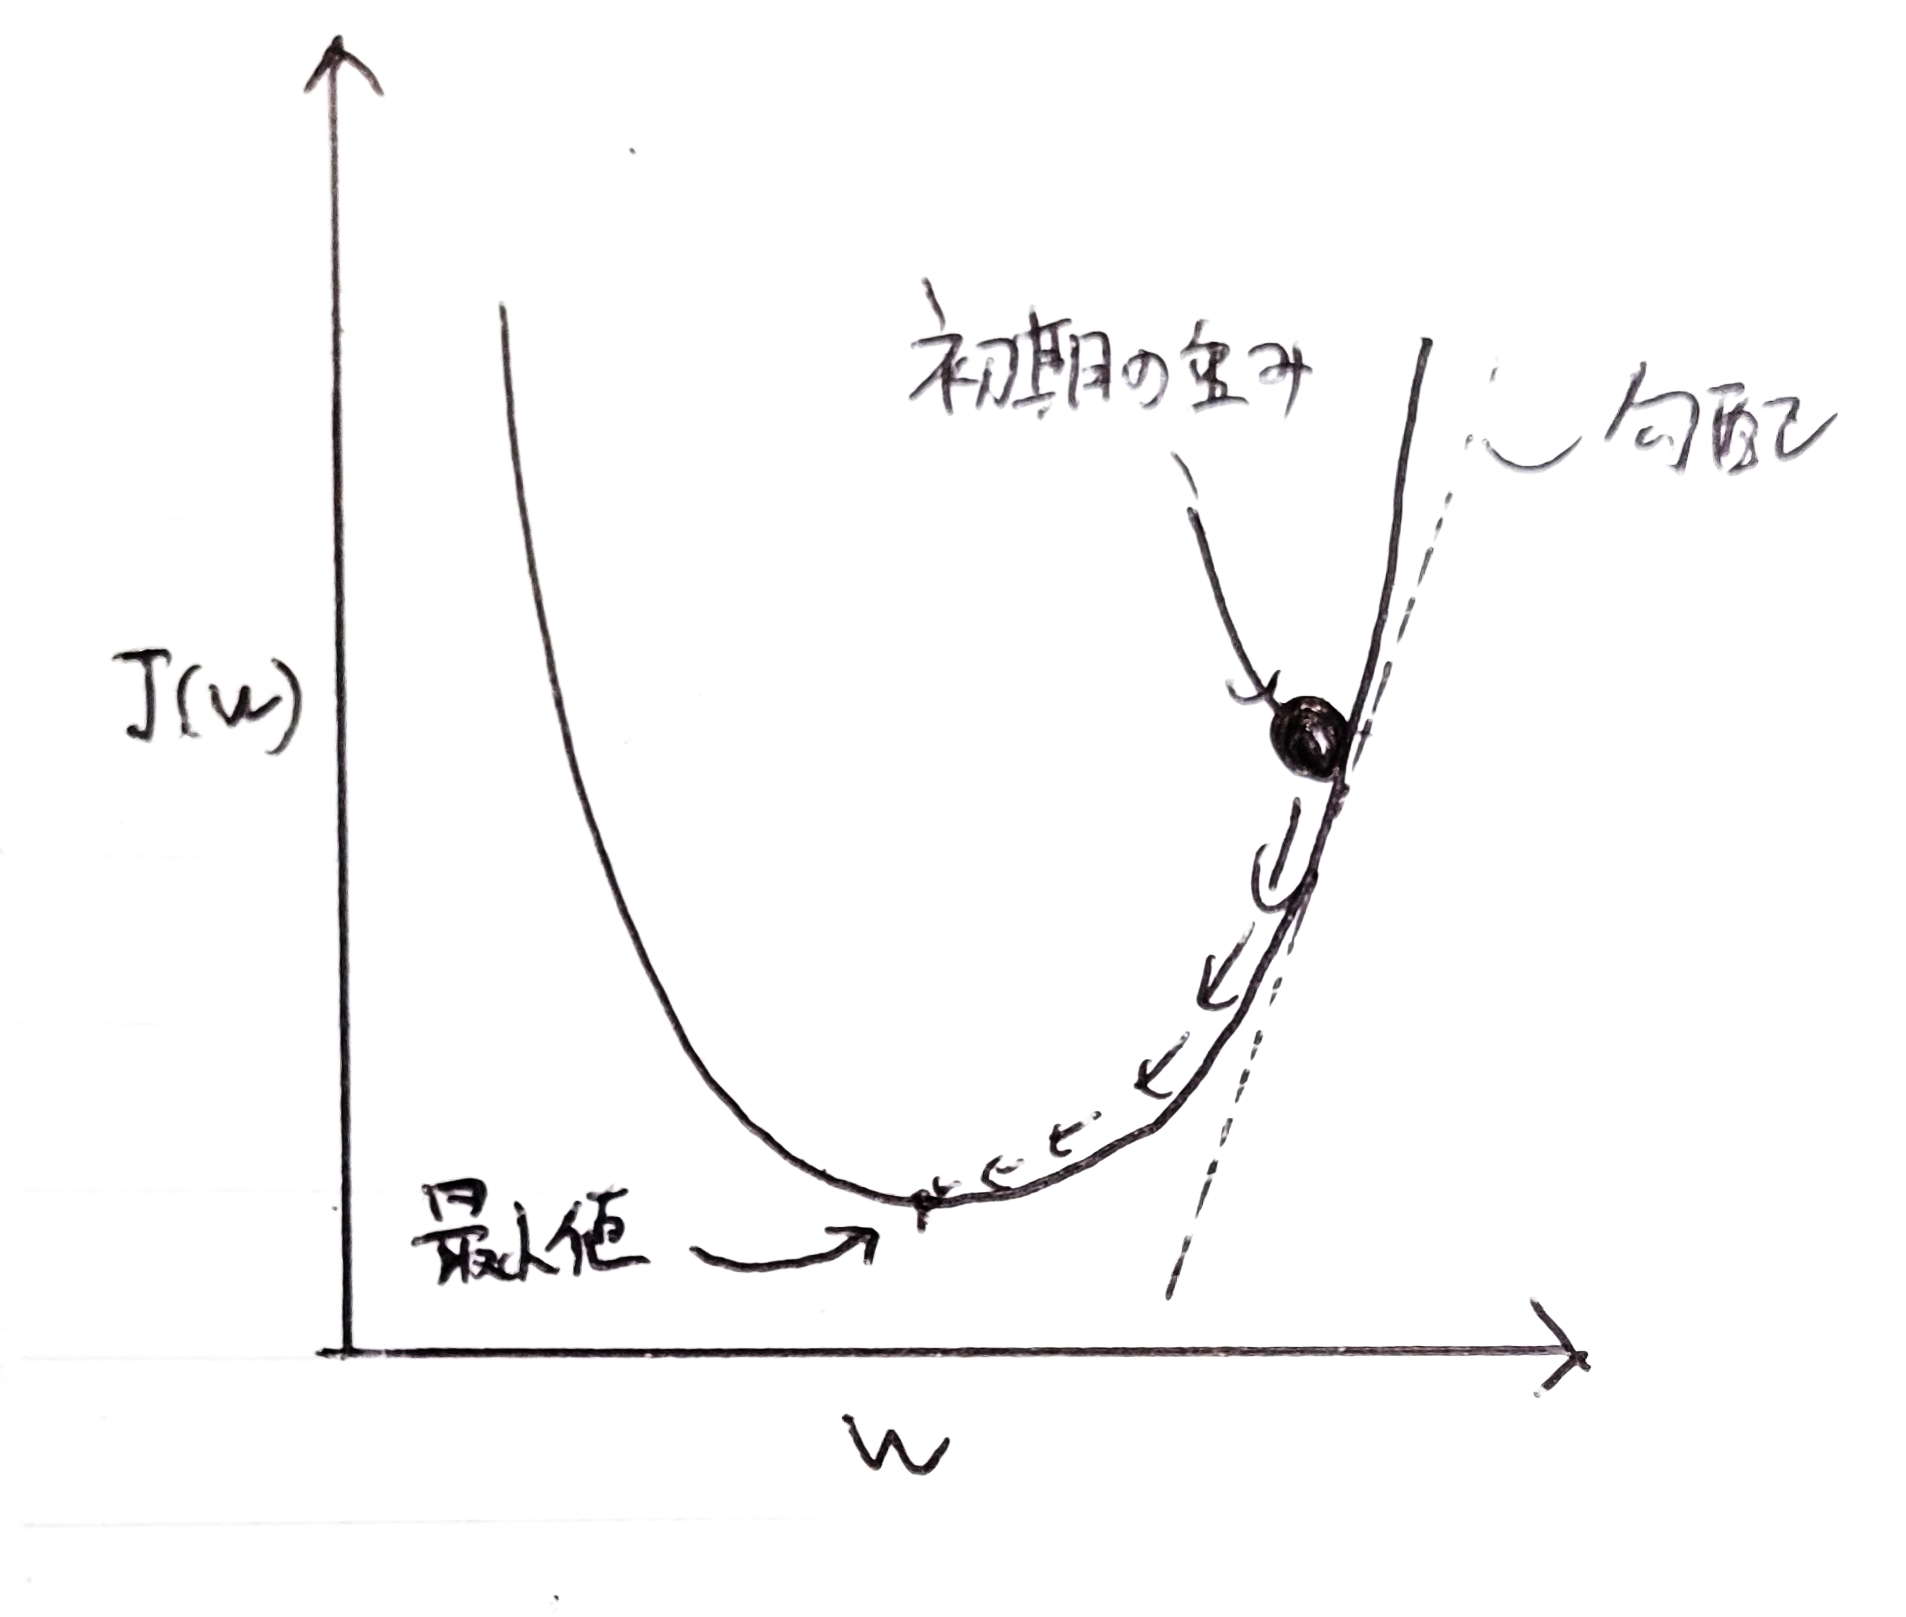 初期の重み
勾配
J(w)
最小値
w